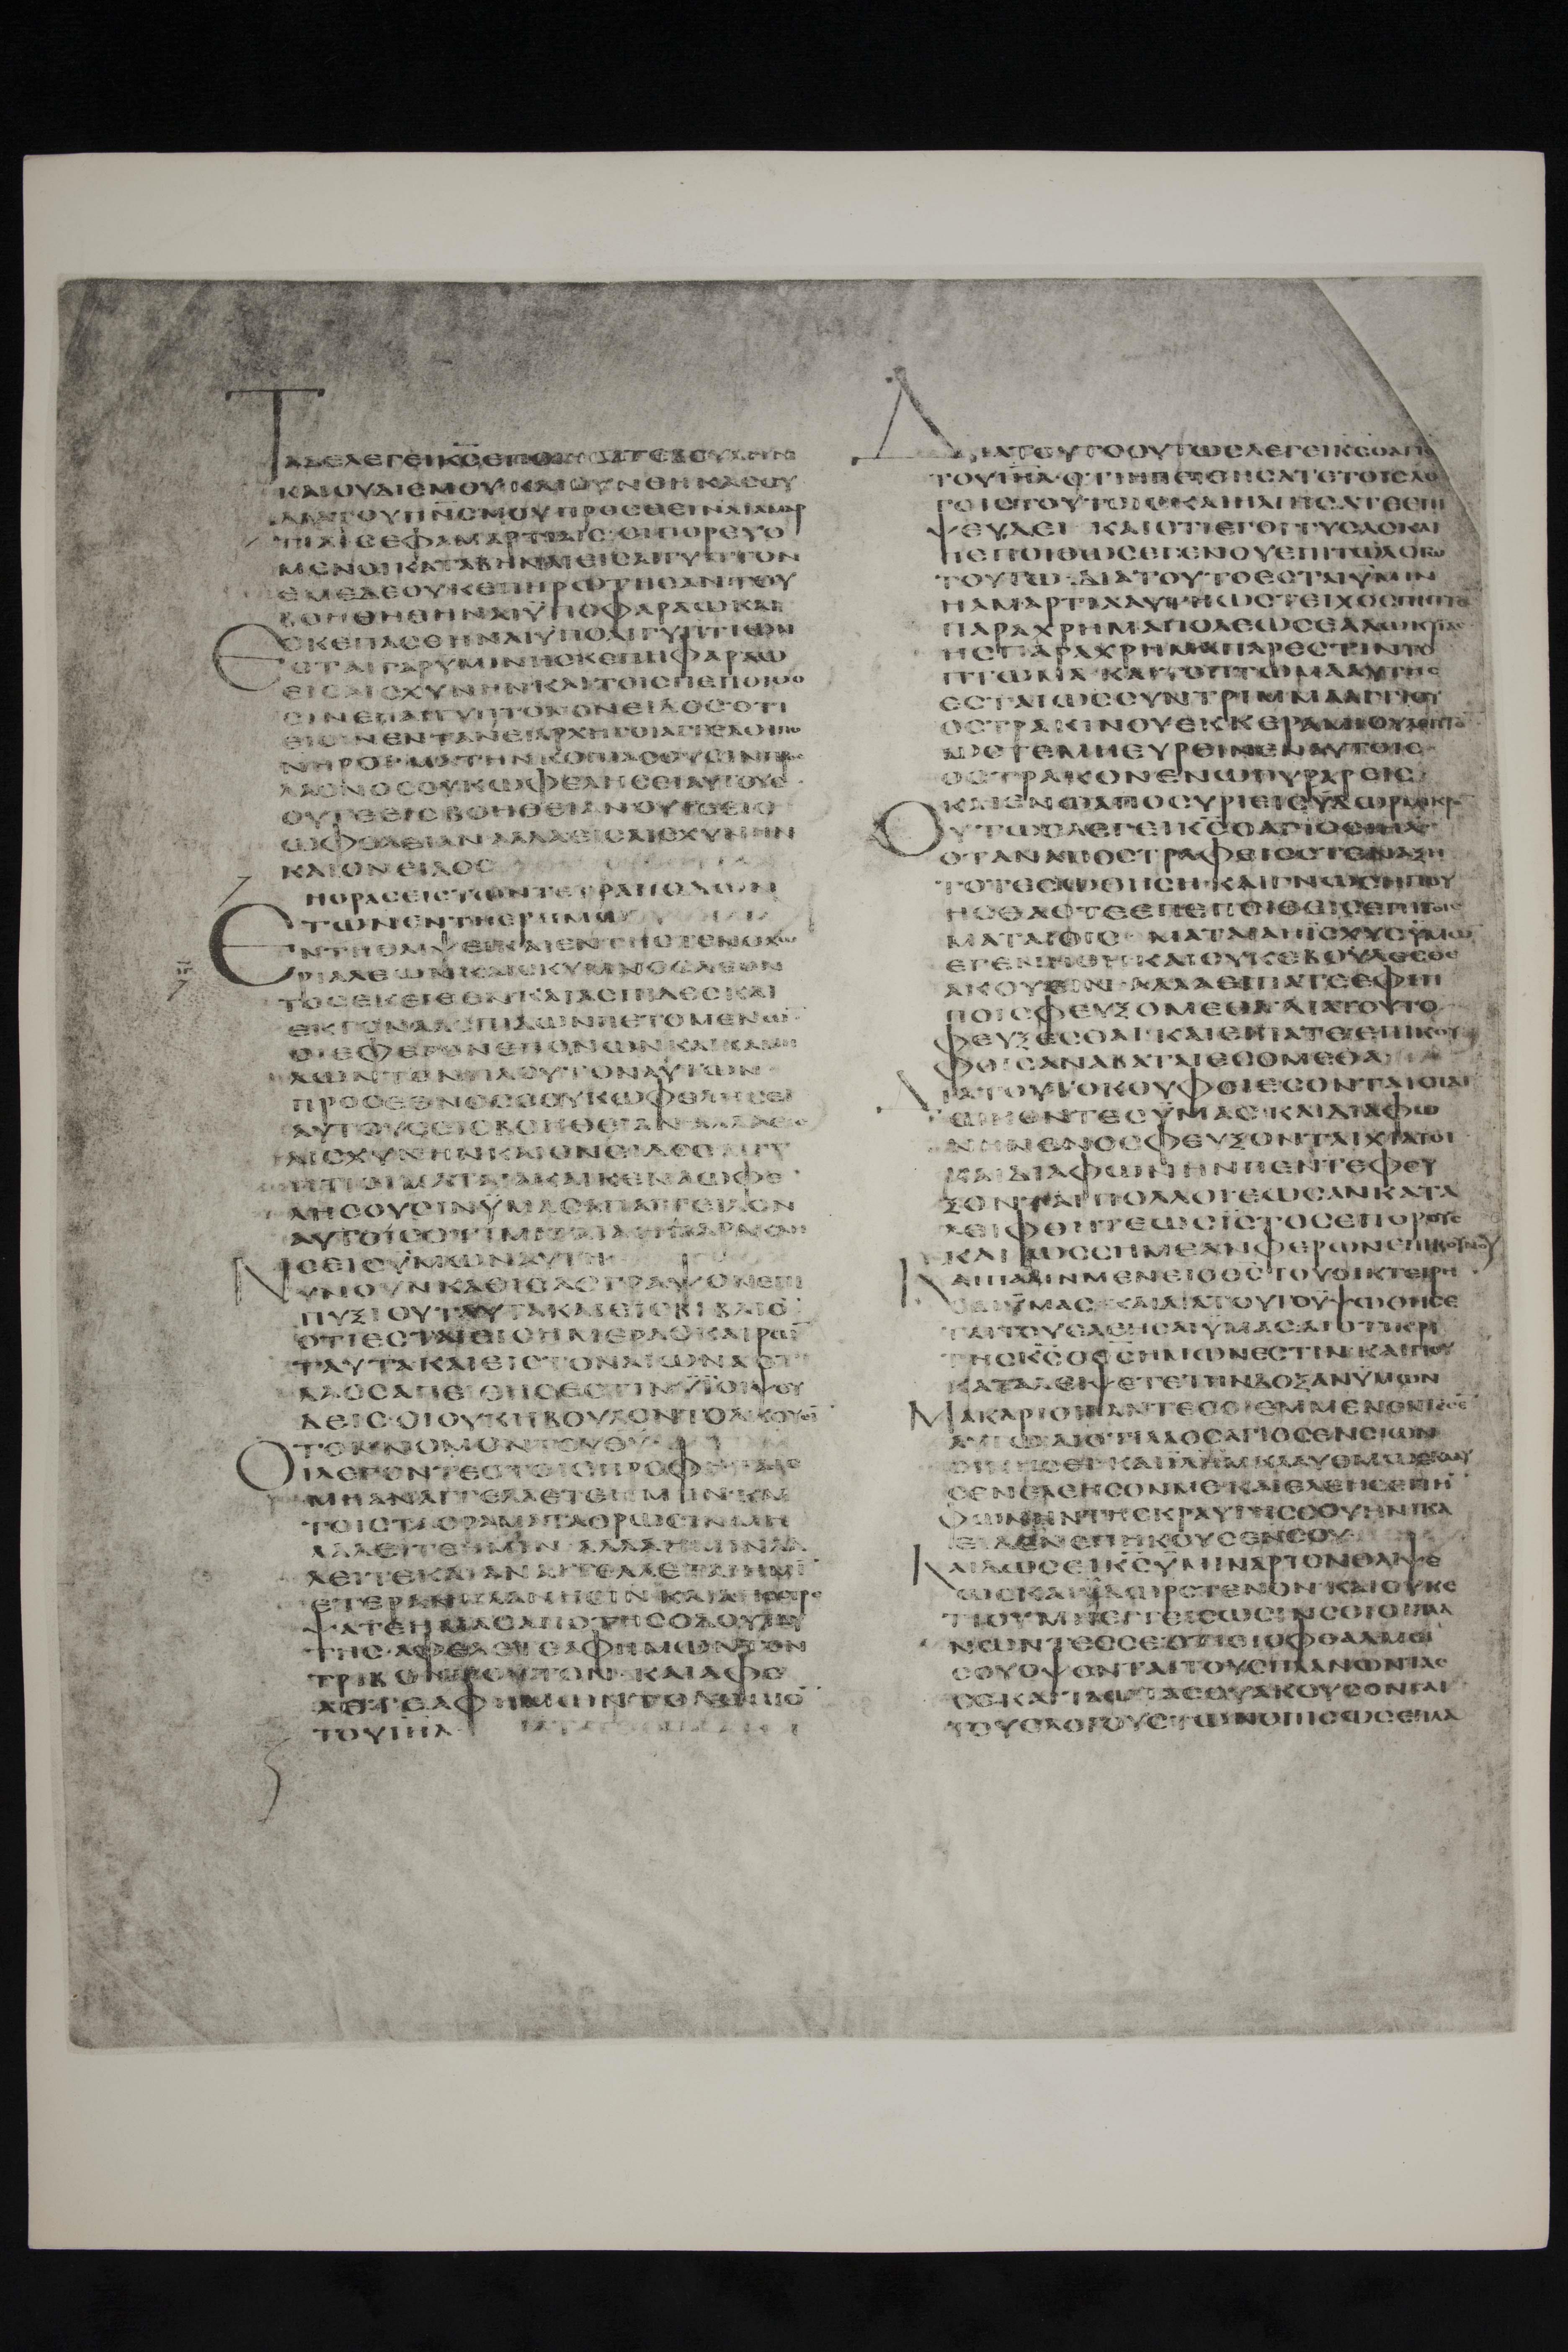 ΤΑΔΕΛΕΓΕΙΚϹ
ΚΑΙΟΥΔΙΕΜΟΥΚΑΙϹΥΝΘΗΚΑϹΟΥ
ΔΙΑΤΟΥΠΝϹΜΟΥΠΡΟϹΘΕΙΝΑΙΑΜΑΡ
ΤΙΑϹΕΦΑΜΑΡΤΙΑΙϹ·ΟΙΠΟΡΕΥΟ
ΜΕΝΟΙΚΑΤΑΒΗΝΑΙΕΙϹΑΙΓΥΠΤΟΝ
ΕΜΕΔΕΟΥΚΕΠΗΡΩΤΗϹΑΝΤΟΥ
ΒΟΗΘΗΘΗΝΑΙΫΠΟΦΑΡΑΩΚΑΙ
ϹΚΕΠΑϹΘΗΝΑΙΫΠΟΑΙΓΥΠΤΙΩΝ
ΕϹΤΑΙΓΑΡΥΜΙΝΗϹΚΕΠΗΦΑΡΑΩ
ΕΙϹΑΙϹΧΥΝΗΝΚΑΙΤΟΙϹΠΕΠΟΙΘΟ
ϹΙΝΕΠΑΙΓΥΠΤΟΝΟΝΕΙΔΟϹΟΤΙ
ΕΙϹΙΝΕΝΤΑΝΕΙΑΡΧΗΓΟΙΑΓΓΕΛΟΙΠΟ
ΝΗΡΟΙ
ΛΑΟΝΟϹΟΥΚΩΦΕΛΗϹΕΙΑΥΤΟΥϹ
ΟΥΤΕΕΙϹΒΟΗΘΕΙΑΝΟΥΤΕΕΙϹ
ΩΦΕΛΕΙΑΝΑΛΛΑΕΙϹΑΙϹΧΥΝΗΝ
ΚΑΙΟΝΕΙΔΟϹ
ΗΟΡΑϹΕΙϹΤΩΝΤΕΤΡΑΠΟΔΩΝ
ΤΩΝΕΝΤΗΕΡΗΜΩ
ΕΝΤΗΘΛΙΨΕΙΚΑΙΕΝΤΗϹΤΕΝΟΧΩ
ΡΙΑΛΕΩΝΚΑΙϹΚΥΜΝΟϹΛΕΟΝ
ΤΟϹΕΚΕΙΘΕΝΚΑΙΑϹΠΙΔΕϹΚΑΙ
ΕΚΓΟΝΑΑϹΠΙΔΩΝΠΕΤΟΜΕΝΩ
ΟΙΕΦΕΡΟΝΕΠΟΝΩΝΚΑΙΚΑΜΗ
ΛΩΝΤΟΝΠΛΟΥΤΟΝΑΥΤΩΝ
ΠΡΟϹΕΘΝΟϹΟΟΥΚΩΦΕΛΗϹΕΙ
ΑΥΤΟΥϹΕΙϹΒΟΗΘΕΙΑΝΑΛΛΑΕΙϹ
ΑΙϹΧΥΝΗΝΚΑΙΟΝΕΙΔΟϹΑΙΓΥ
ΠΤΙΟΙΜΑΤΑΙΑΚΑΙΚΕΝΑΩΦΕ
ΛΗϹΟΥϹΙΝΫΜΑϹΑΠΑΓΓΕΙΛΟΝ
ΑΥΤΟΙϹΟΤΙΜΑΤΑΙΑΗΠΑΡΑΚΛΗ
ϹΕΙϹΥΜΩΝΑΥΤΗ
ΝΥΝΟΥΝΚΑΘΙϹΑϹΓΡΑΨΟΝΕΠΙ
ΠΥΞΙΟΥΤΑΥΤΑΚΑΙΕΙϹΒΙΒΛΙΟ
ΟΤΙΕϹΤΑΙΕΙϹΗΜΕΡΑϹΚΑΙΡΩ
ΤΑΥΤΑΚΑΙΕΙϹΤΟΝΑΙΩΝΑΟΤΙ
ΛΑΟϹΑΠΕΙΘΗϹΕϹΤΙΝΫΙΟΙΨΕΥ
ΔΕΙϹ·ΟΙΟΥΚΗΒΟΥΛΟΝΤΟΑΚΟΥΕΙ
ΤΟΝΝΟΜΟΝΤΟΥΘΥ
ΟΙΛΕΓΟΝΤΕϹΤΟΙϹΠΡΟΦΗΤΑΙϹ
ΜΗΑΝΑΓΓΕΛΛΕΤΕΗΜΙΝΚΑΙ
ΤΟΙϹΤΑΟΡΑΜΑΤΑΟΡΩϹΙΝΜΗ
ΛΑΛΕΙΤΕΗΜΙΝΑΛΛΑΗΜΙΝΛΑ
ΛΕΙΤΕΚΑΙΑΝΑΓΓΕΛΛΕΤΕΗΜΙ
ΕΤΕΡΑΝΠΛΑΝΗϹΙΝΚΑΙΑΠΟϹΤΡΕ
ΨΑΤΕΗΜΑϹΑΠΟΤΗϹΟΔΟΥΤΑΥ
ΤΗϹ·ΑΦΕΛΕΤΕΑΦΗΜΩΝΤΟΝ
ΤΡΙΒΟΝΤΟΥΤΟΝΚΑΙΑΦΕ
ΛΕΤΕΑΦΗΜΩΝΤΟΛΟΓΙΟ
ΤΟΥΙΗΛ
ΔΙΑΤΟΥΤΟΟΥΤΩϹΛΕΓΕΙΚϹΟΑΓΙ
ΤΟΥΙΗΛΟΤΙΗΠΕΙΘΗϹΑΤΕΤΟΙϹΛΟ
ΓΟΙϹΤΟΥΤΟΙϹΚΑΙΗΛΠΙϹΑΤΕΕΠΙ
ΨΕΥΔΕΙΚΑΙΟΤΙΕΓΟΓΓΥϹΑϹΚΑΙ
ΠΕΠΟΙΘΩϹΕΓΕΝΟΥΕΠΙΤΩΛΟΓΩ
ΤΟΥΤΩ·ΔΙΑΤΟΥΤΟΕϹΤΑΙΫΜΙΝ
ΗΑΜΑΡΤΙΑΑΥΤΗΩϹΤΕΙΧΟϹΠΙΠΤΟ
ΠΑΡΑΧΡΗΜΑΠΟΛΕΩϹΕΑΛΩΚΥΙΑϹ
ΗϹΠΑΡΑΧΡΗΜΑΠΑΡΕϹΤΙΝΤΟ
ΠΤΩΜΑΚΑΙΤΟΠΤΩΜΑΑΥΤΗϹ
ΕϹΤΑΙΩϹϹΥΝΤΡΙΜΜΑΑΓΓΙΟΥ
ΟϹΤΡΑΚΙΝΟΥΕΚΚΕΡΑΜΙΟΥΛΕΠΤΑ
ΩϹΤΕΜΗΕΥΡΕΙΝΕΝΑΥΤΟΙϹ
ΟϹΤΡΑΚΟΝΕΝΩΠΥΡΑΡΕΙϹ
ΚΑΙΕΝΩΑΠΟϹΥΡΙΕΙϹΫΔΩΡΜΙΚΡΟ
ΟΥΤΩϹΛΕΓΕΙΚϹΟΑΓΙΟϹΙΗΛ
ΟΤΑΝΑΠΟϹΤΡΑΦΕΙϹϹΤΕΝΑΞΗ
ΤΟΤΕϹΩΘΗϹΗΚΑΙΓΝΩϹΗΠΟΥ
ΗϹΘΑΟΤΕΕΠΕΠΟΙΘΕΙϹΕΠΙΤΟΙϹ
ΜΑΤΑΙΟΙϹΜΑΤΑΙΑΗΙϹΧΥϹΫΜΩ
ΕΓΕΝΗΘΗΚΑΙΟΥΚΕΒΟΥΛΕϹΘΕ
ΑΚΟΥΕΙΝΑΛΛΑΕΙΠΑΤΕΕΦΙΠ
ΠΟΙϹΦΕΥΞΟΜΕΘΑΔΙΑΤΟΥΤΟ
ΦΕΥΞΕϹΘΑΙΚΑΙΕΙΠΑΤΕΕΠΙΚΟΥ
ΦΟΙϹΑΝΑΒΑΤΑΙΕϹΟΜΕΘΑ
ΔΙΑΤΟΥΤΟΚΟΥΦΟΙΕϹΟΝΤΑΙΟΙΔΙ
ΩΚΟΝΤΕϹΫΜΑϹΚΑΙΔΙΑΦΩ
ΝΗΝΕΝΟϹΦΕΥΞΟΝΤΑΙΧΙΛΙΟΙ
ΚΑΙΔΙΑΦΩΝΗΝΠΕΝΤΕΦΕΥ
ΞΟΝΤΑΙΠΟΛΛΟΙΕΩϹΑΝΚΑΤΑ
ΛΕΙΦΘΗΤΕΩϹΙϹΤΟϹΕΠΟΡΟΥϹ
ΚΑΙΩϹϹΗΜΕΑΝΦΕΡΩΝΕΠΙΒΟΥΝΟΥ
ΚΑΙΠΑΛΙΝΜΕΝΕΙΟΘϹΤΟΥΟΙΚΤΕΙΡΗ
ϹΑΙΫΜΑϹΚΑΙΔΙΑΤΟΥΤΟΫΨΩΘΗϹΕ
ΤΑΙΤΟΥΕΛΕΗϹΑΙΥΜΑϹΔΙΟΤΙΚΡΙ
ΤΗϹΚϹΟΘϹΗΜΩΝΕϹΤΙΝΚΑΙΠΟΥ
ΚΑΤΑΛΕΙΨΕΤΕΤΗΝΔΟΞΑΝΫΜΩΝ
ΜΑΚΑΡΙΟΙΠΑΝΤΕϹΟΙΕΜΜΕΝΟΝΤΕϹ
ΑΥΤΩΔΙΟΤΙΛΑΟϹΑΓΙΟϹΕΝϹΙΩΝ
ΟΙΚΗϹΕΙΚΑΙΙΛΗΜΚΛΑΥΘΜΩΕΚΛΑΥ
ϹΕΝΕΛΕΗϹΟΝΜΕΚΑΙΕΛΕΗϹΕΙΤΗ
ΦΩΝΗΝΤΗϹΚΡΑΥΓΗϹϹΟΥΗΝΙΚΑ
ΕΙΔΕΝΕΠΗΚΟΥϹΕΝϹΟΥ
ΚΑΙΔΩϹΕΙΚϹΫΜΙΝΑΡΤΟΝΘΛΙΨΕ
ΩϹΚΑΙΫΔΩΡϹΤΕΝΟΝΚΑΙΟΥΚΕ
ΤΙΟΥΜΗΕΓΓΙϹΩϹΙΝϹΟΙΟΙΠΛΑ
ΝΩΝΤΕϹϹΕΟΤΙΟΙΟΦΘΑΛΜΟΙ
ϹΟΥΟΨΟΝΤΑΙΤΟΥϹΠΛΑΝΩΝΤΑϹ
ϹΕΚΑΙΤΑΩΤΑϹΟΥΑΚΟΥϹΟΝΤΑΙ
ΤΟΥϹΛΟΓΟΥϹΤΩΝΟΠΙϹΩϹΕΠΛΑ